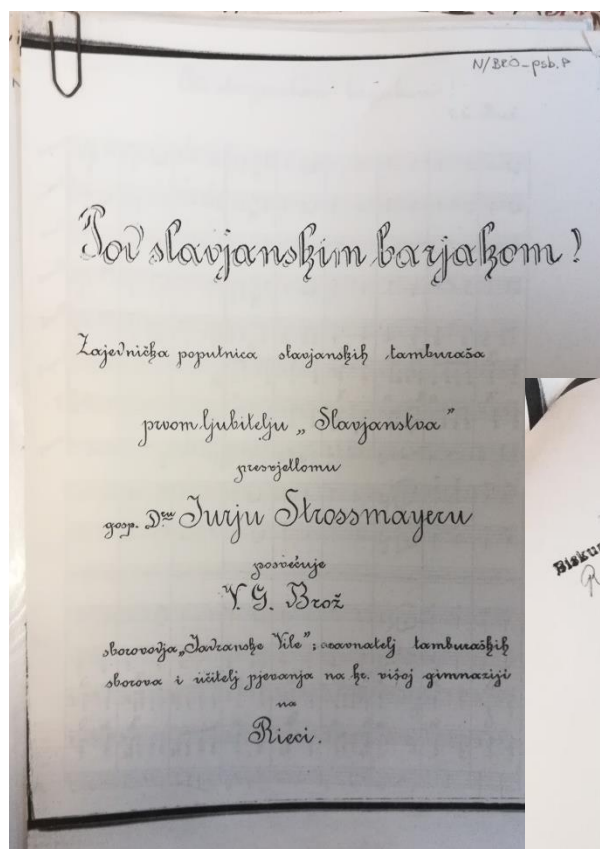 N/BRO-psb.P
Pod slavjanskim barjakom!
Zajednička poputnica slavjanskih tamburaša
prvom ljubitelju „Slavjanstva"
presvjetlomu
gosp. Dru Jurju Strossmayeru
posvećuje
V. G. Brož
sborovodja „Javranske Vile"; ravnatelj tamburaških
sborova i učitelj pjevanja na kr. višoj gimnaziji
na
Rieci.